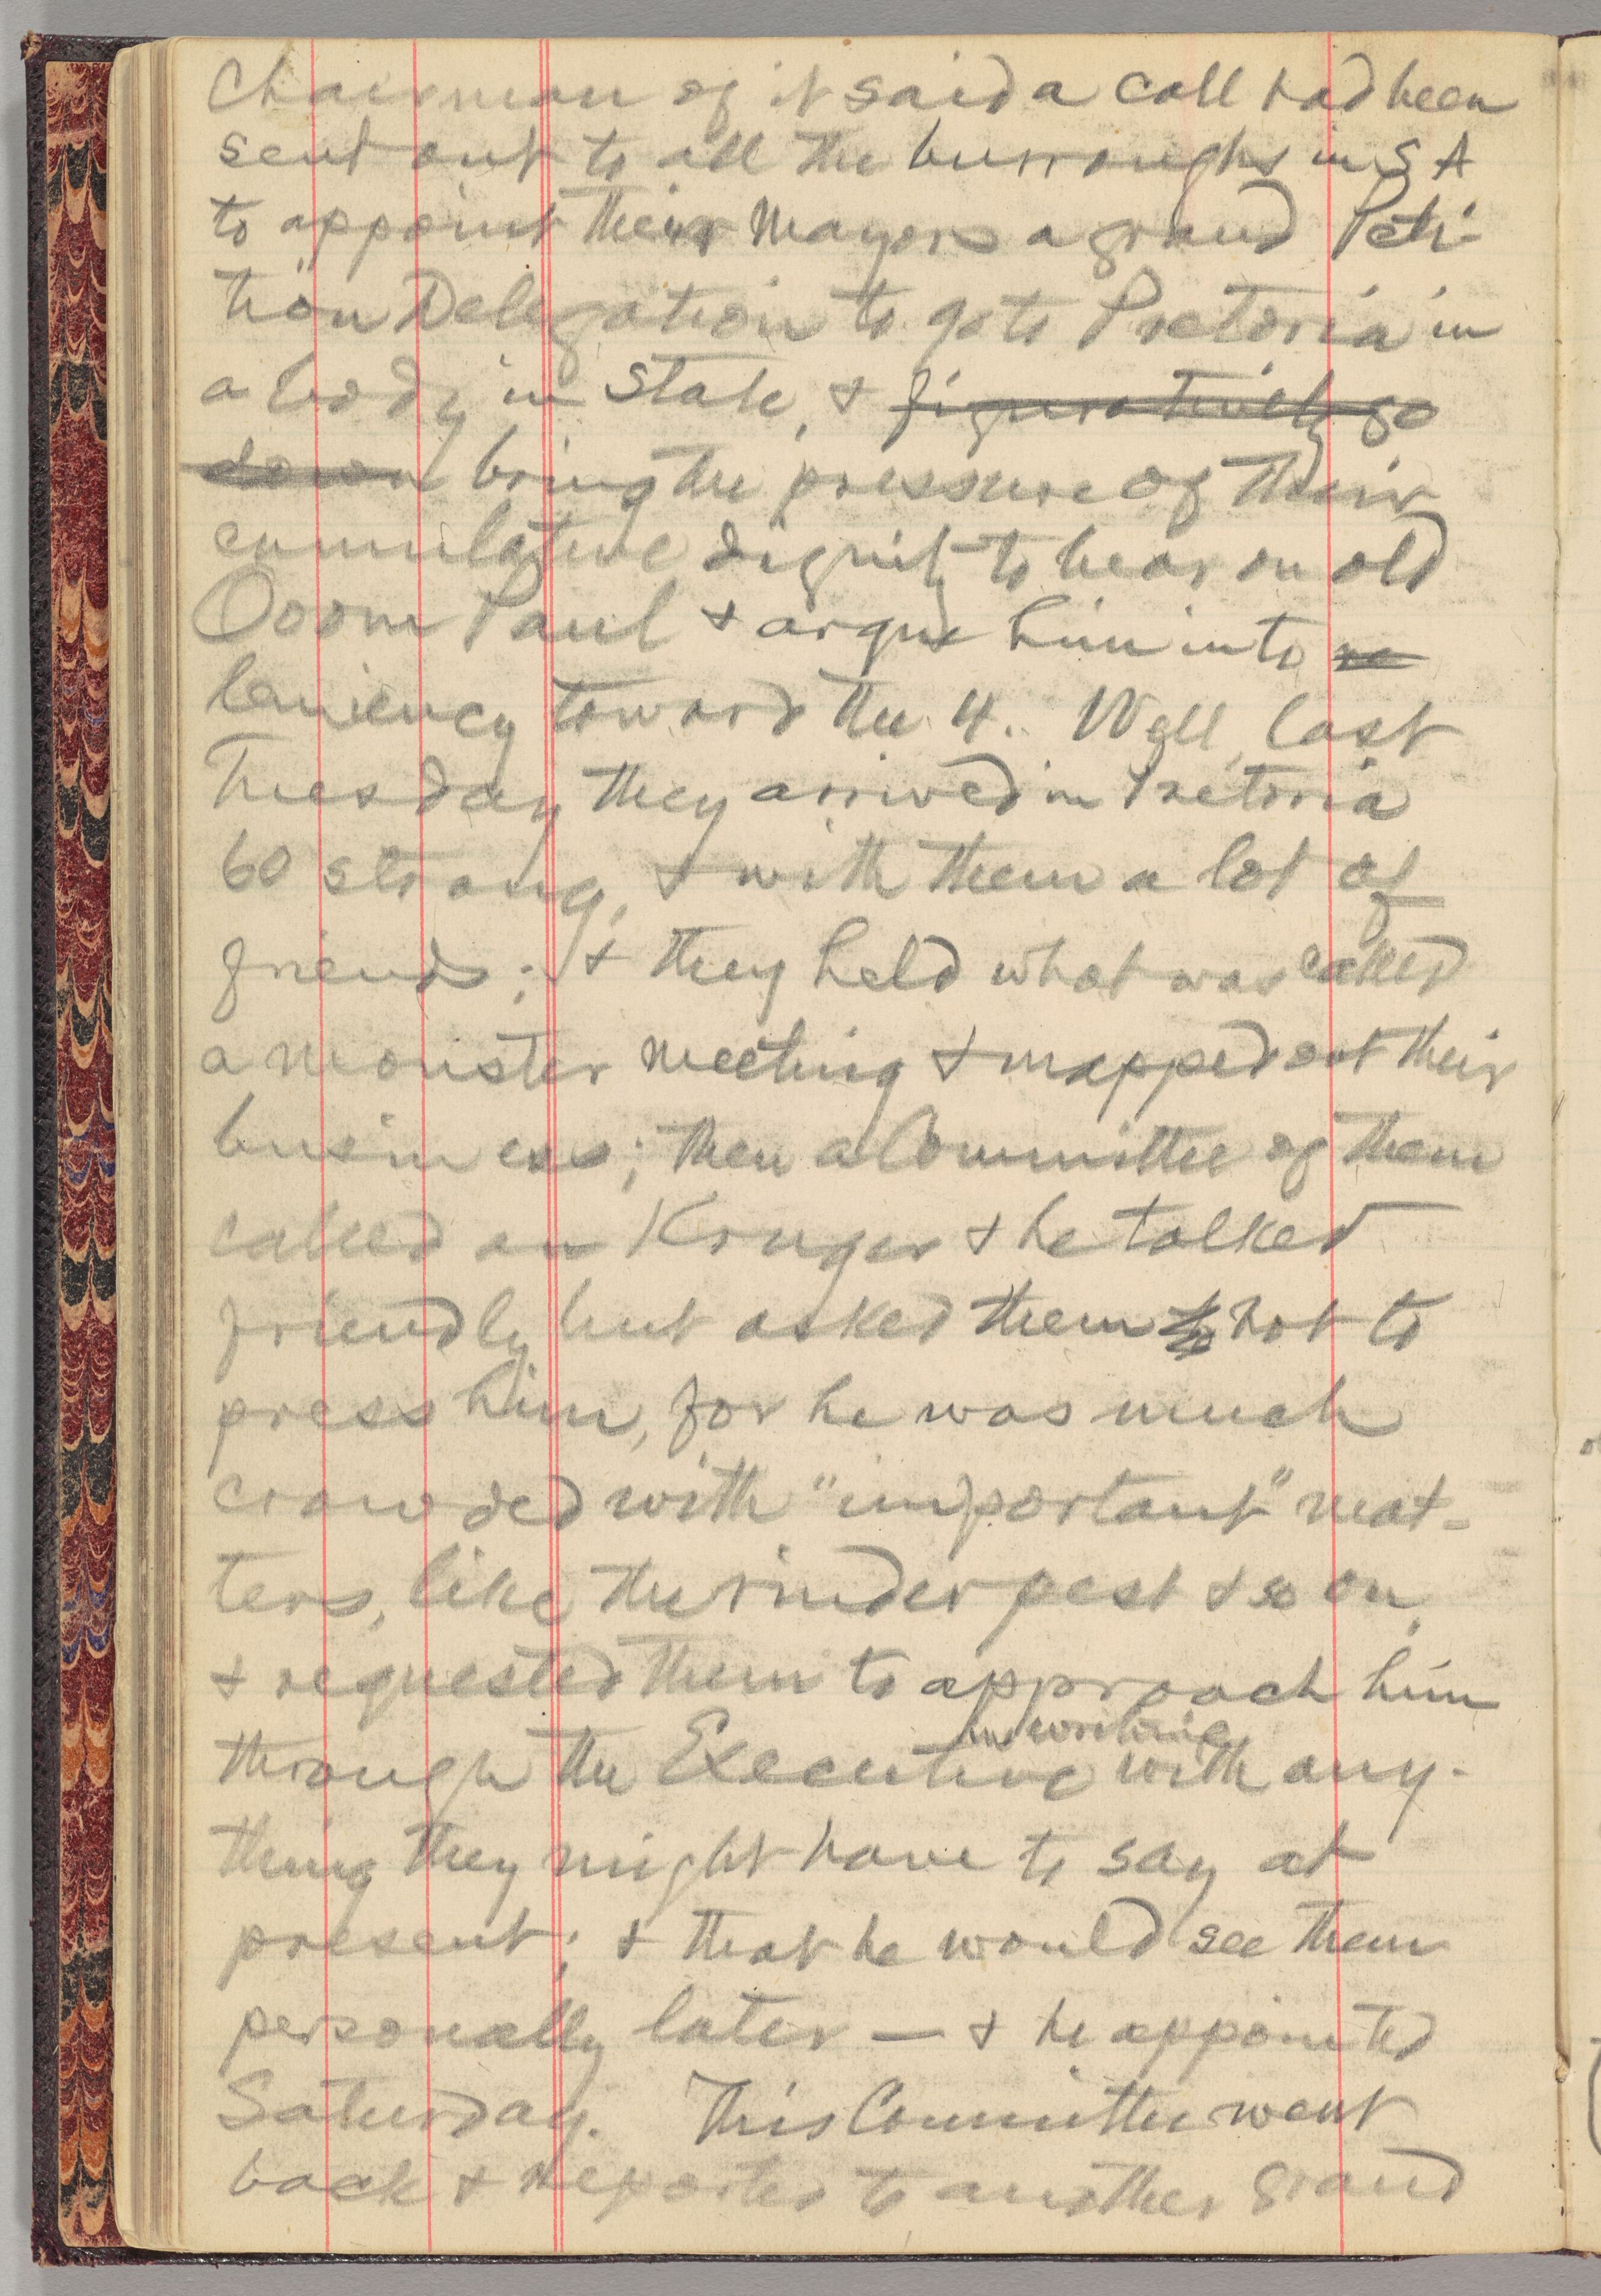 Chairman of it said a call had been
sent out to all the burroughs in S A
to appoint their Mayors a grand Peti-
tion Delegation to go to Pretoria in
a body, in State, & figuratively go
down bring the pressure of their
cumulative dignity to bear on old
Ooom Paul & argue him into re
leniency toward the 4. Well, last
Tuesday they arrived in Pretoria
60 strong, & with them a lot of
friends; & they held what was called
a monster meeting & mapped out their
business; then a Committee of them
called on Kruger & he talked
friendly but asked them to not to
press him, for he was much
crowded with "important" mat-
ters, like the rinderpest & so on,
& requested them to approach him
in writing
through the Executive with any-
thing they might have to say at
present; & that he would see them
personally later — & he appointed
Saturday. This Committee went
back & reported to another grand